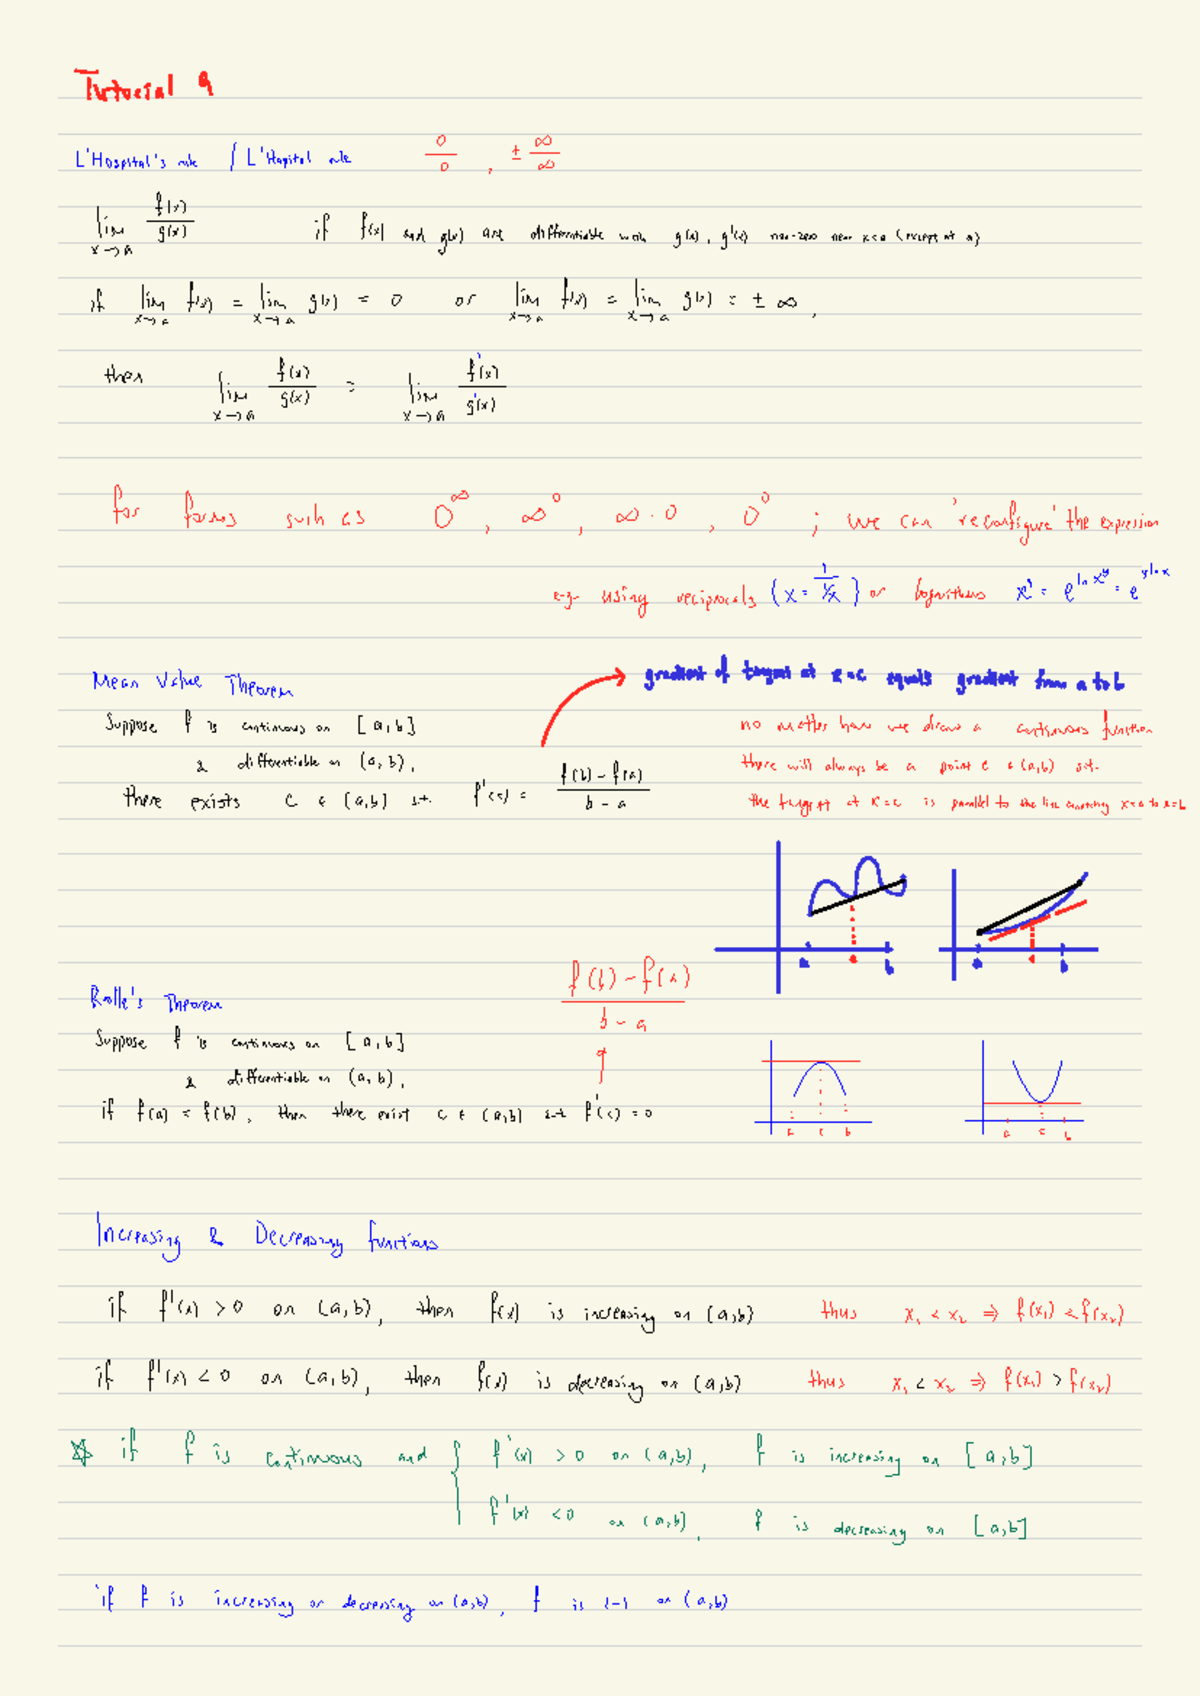 Tutorial 9
L'Hospital's rule / L'Hopital rule 0/0 , ± ∞/∞
lim x→a f(x)/g(x) if f(x) and g(x) are differentiable with g(x), g'(x) non-zero near x=a (except at a)
if lim x→a f(x) = lim x→a g(x) = 0 or lim x→a f(x) = lim x→a g(x) = ± ∞,
then lim x→a f(x)/g(x) = lim x→a f'(x)/g'(x)
for forms such as 0^∞, ∞^0, ∞·0, 0^0 ; we can 'reconfigure' the expression
e.g. using reciprocals (x = 1/(1/x)) or logarithms x^y = e^(ln x^y) = e^(y ln x)
Mean Value Theorem
gradient of tangent at x=c equals gradient from a to b
Suppose f is continuous on [a,b]
no matter how we draw a continuous function
& differentiable on (a,b),
there will always be a point c ∈ (a,b) s.t.
there exists c ∈ (a,b) s.t. f'(c) = (f(b) - f(a))/(b - a)
the tangent at x=c is parallel to the line connecting x=a to x=b
a b
a b
(f(b) - f(a))/(b - a)
Rolle's Theorem
Suppose f is continuous on [a,b]
& differentiable on (a,b),
if f(a) = f(b), then there exist c ∈ (a,b) s.t f'(c) = 0
a c b
a c b
Increasing & Decreasing functions
if f'(x) > 0 on (a,b), then f(x) is increasing on (a,b) thus x₁ < x₂ ⇒ f(x₁) < f(x₂)
if f'(x) < 0 on (a,b), then f(x) is decreasing on (a,b) thus x₁ < x₂ ⇒ f(x₁) > f(x₂)
☆ if f is continuous and { f'(x) > 0 on (a,b), f is increasing on [a,b]
f'(x) < 0 on (a,b), f is decreasing on [a,b]
if f is increasing or decreasing on (a,b), f is 1-1 on (a,b)